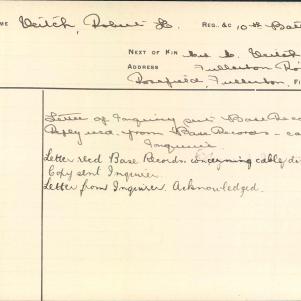 ME Veitch, Robert H. REG. &C 10th Batt
NEXT OF KIN C. Veitch
ADDRESS Fullerton Ro
Rosefield, Fullerton, FI
Letter of Inquiry sent Base Reco
Reply recd. from Base Records - ca
Inquirer
Letter recd Base Records concerning cable, di
Copy sent Inquirer.
Letter from Inquirer Acknowledged.